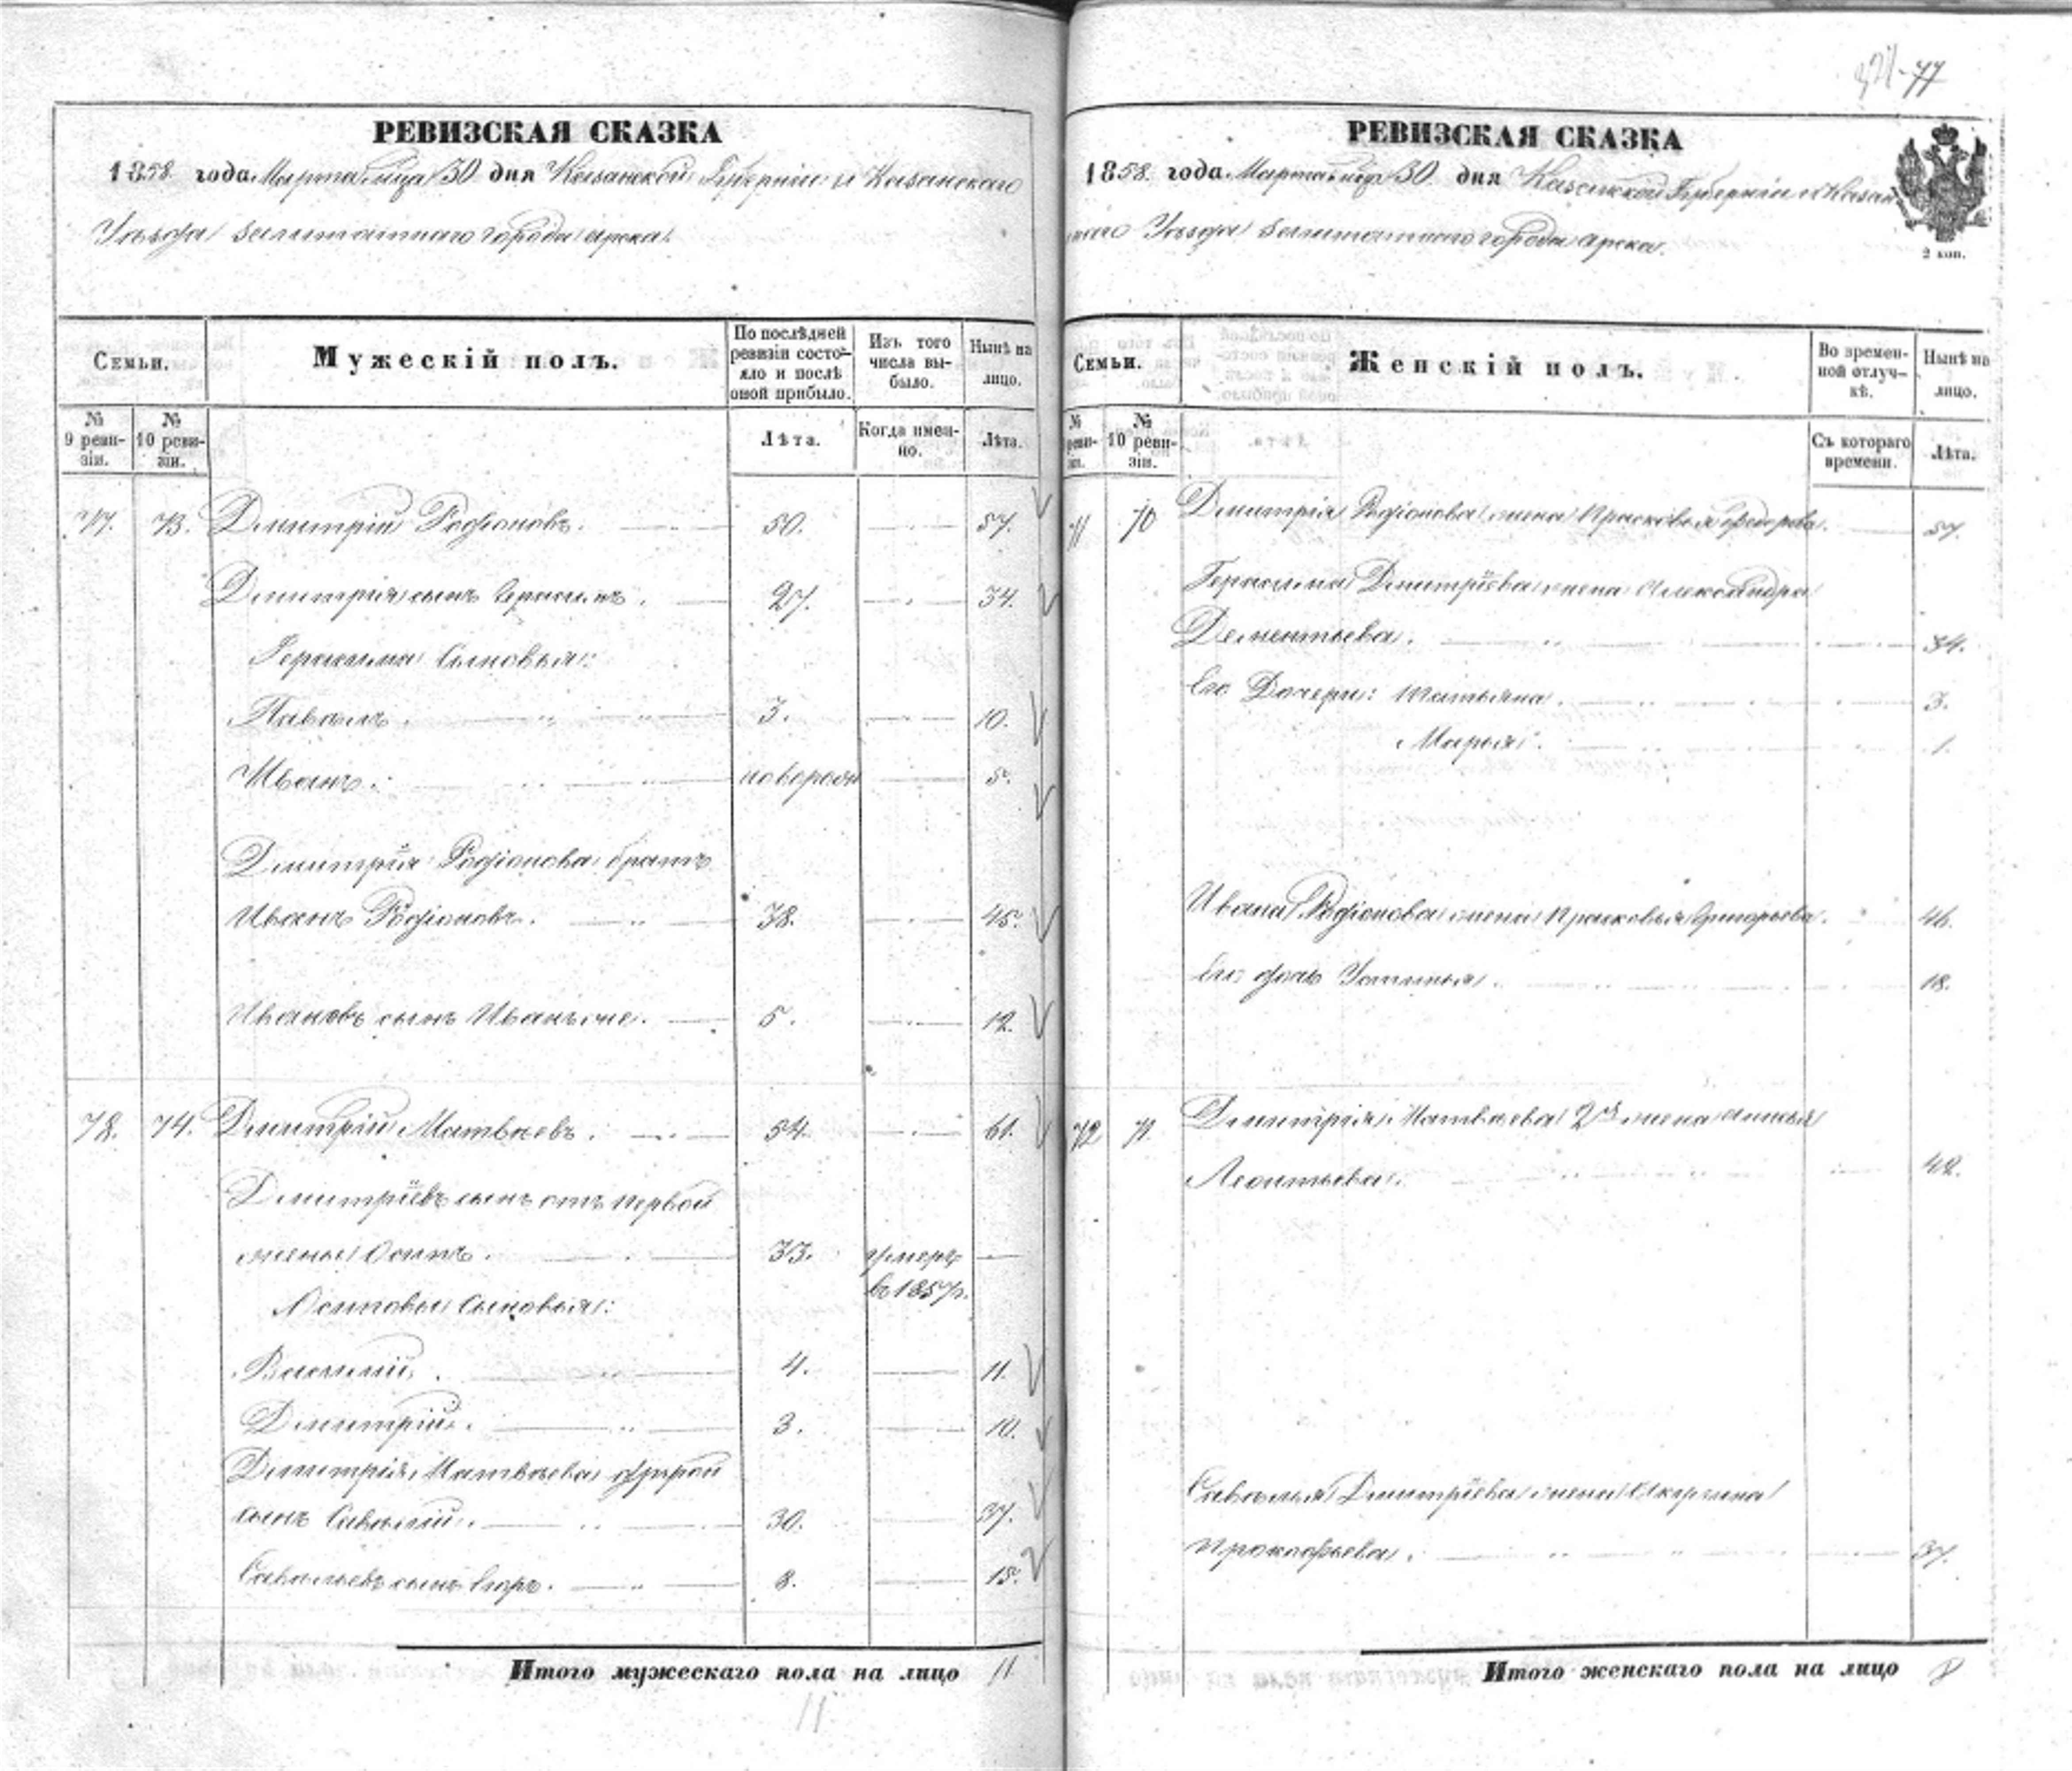 77
РЕВИЗСКАЯ СКАЗКА
1858 года Марта м-ца 30 дня Казанской Губерніи и Казанскаго
Уѣзда Заштатнаго города Арска.
Семьи.
Мужескій полъ.
По послѣдней ревизіи состояло и послѣ оной прибыло.
Изъ того числа выбыло.
Нынѣ на лицо.
№ 9 ревизіи.
№ 10 ревизіи.
Лѣта.
Когда именно.
Лѣта.
77. 73. Дмитрій Родіоновъ. 50. 57.
Дмитрія сынъ Герасимъ. 27. 34.
Герасима Сыновья:
Павелъ. 3. 10.
Иванъ. новорожд 5.
Дмитрія Родіонова братъ
Иванъ Родіоновъ. 38. 45.
Ивановъ сынъ Иванъ же. 5. 12.
78. 74. Дмитрій Матвѣевъ. 54. 61.
Дмитріевъ сынъ отъ первой
жены Осипъ. 33. умеръ
в 1857 г.
Осиповы Сыновья:
Василій. 4. 11.
Дмитрій. 3. 10.
Дмитрія Матвѣева другой
сынъ Савелій. 30. 37.
Савельевъ сынъ Егоръ. 8. 15.
Итого мужескаго пола на лицо 11
11
РЕВИЗСКАЯ СКАЗКА
1858. года Марта м-ца 30. дня Казанской Губерніи и Казан
скаго Уѣзда Заштатнаго города Арска.
2 коп.
Семьи.
Женскій полъ.
Во временной отлучкѣ.
Нынѣ на лицо.
№ ревизіи.
№ 10 ревизіи.
Съ котораго времени.
Лѣта.
71 70 Дмитрія Родіонова жена Прасковья Федорова. 57.
Герасима Дмитріева жена Александра
Дементьева. 34.
Его Дочери: Татьяна. 3.
Марья. 1.
Ивана Родіонова жена Прасковья Григорьева. 46.
Его дочь Устинья. 18.
72 71. Дмитрія Матвѣева 2я жена
Леонтьева. 42.
Савелья Дмитріева жена Акулина
Прокофьева. 37.
Итого женскаго пола на лицо 8